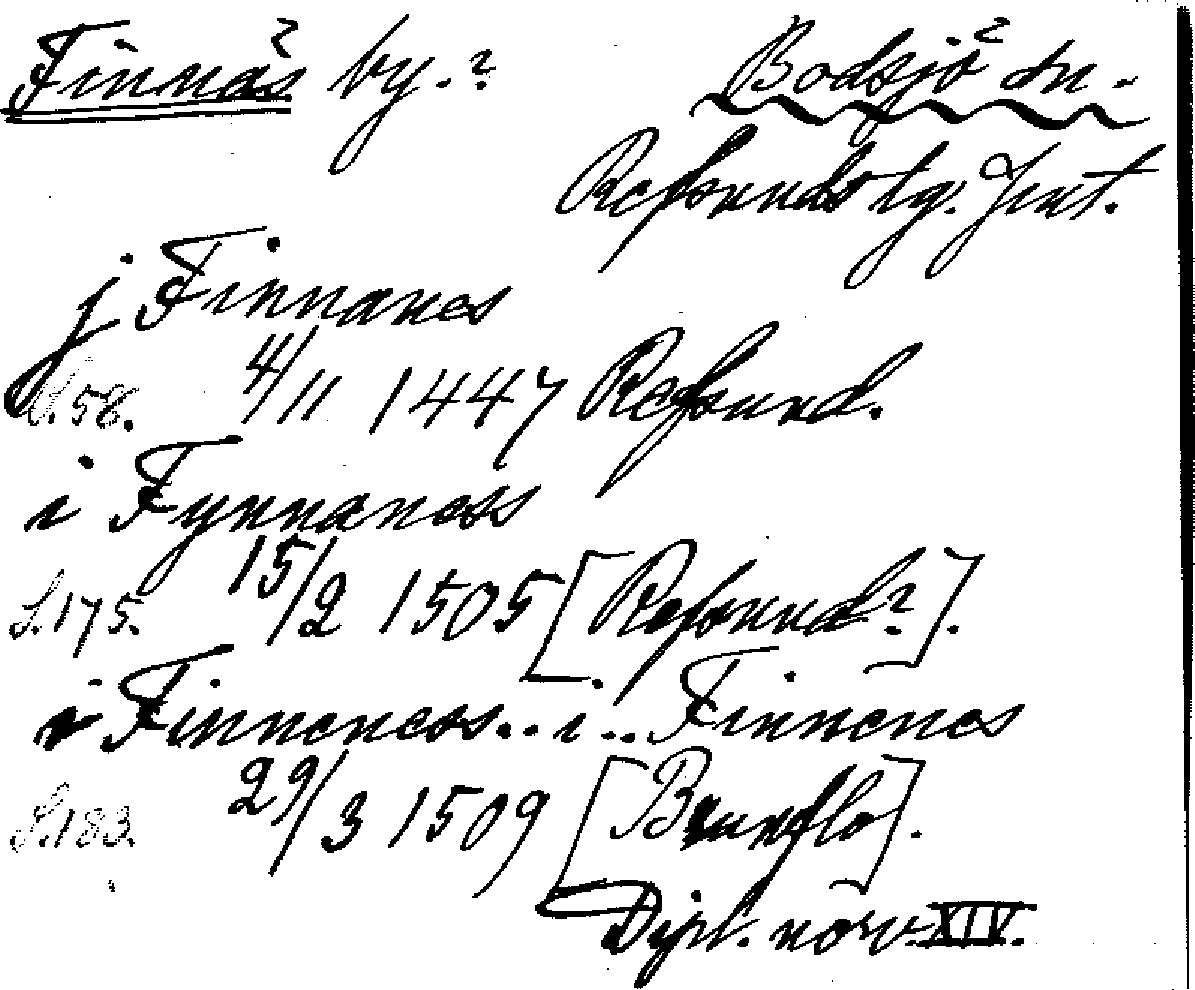 Finnäs by.? Bodsjö sn.
Refsunds tg. Jmt.
j Finnanes
S. 58. 4/11 1447 Refsund.
i Fynnaness
S. 175. 15/2 1505 [Refsund?].
i Finneness... i ... Finnenes
S. 183. 29/3 1509 [Brunflo].
Dipl. norv. XIV.